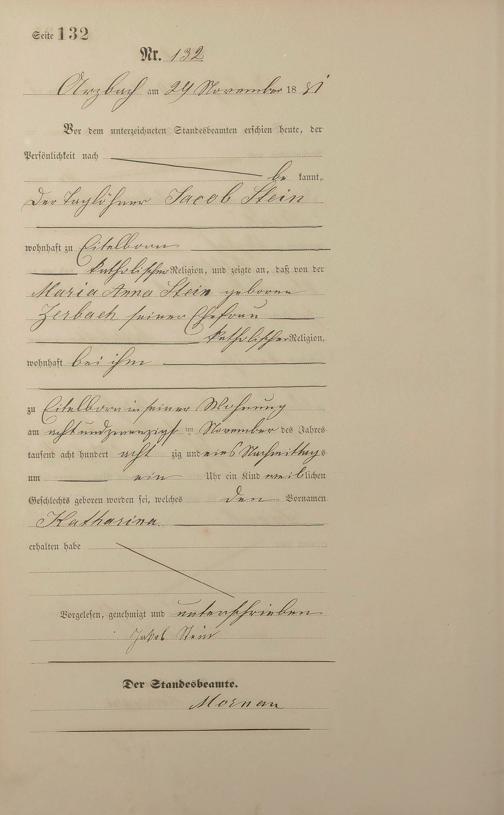 Seite 132
Nr. 132
Arzbach am 29 November 1881
Vor dem unterzeichneten Standesbeamten erschien heute, der
Persönlichkeit nach
be kannt,
der Taglöhner Jacob Stein
wohnhaft zu Eitelborn
katholischer Religion, und zeigte an, daß von der
Maria Anna Stein geborene
Zerbach seiner Ehefrau
katholischer Religion,
wohnhaft bei ihm
zu Eitelborn in seiner Wohnung
am achtundzwanzigst en November des Jahres
tausend acht hundert acht zig und eins Nachmittags
um ein Uhr ein Kind weib lichen
Geschlechts geboren worden sei, welches den Vornamen
Katharina
erhalten habe
Vorgelesen, genehmigt und unterschrieben
Jakob Stein
Der Standesbeamte.